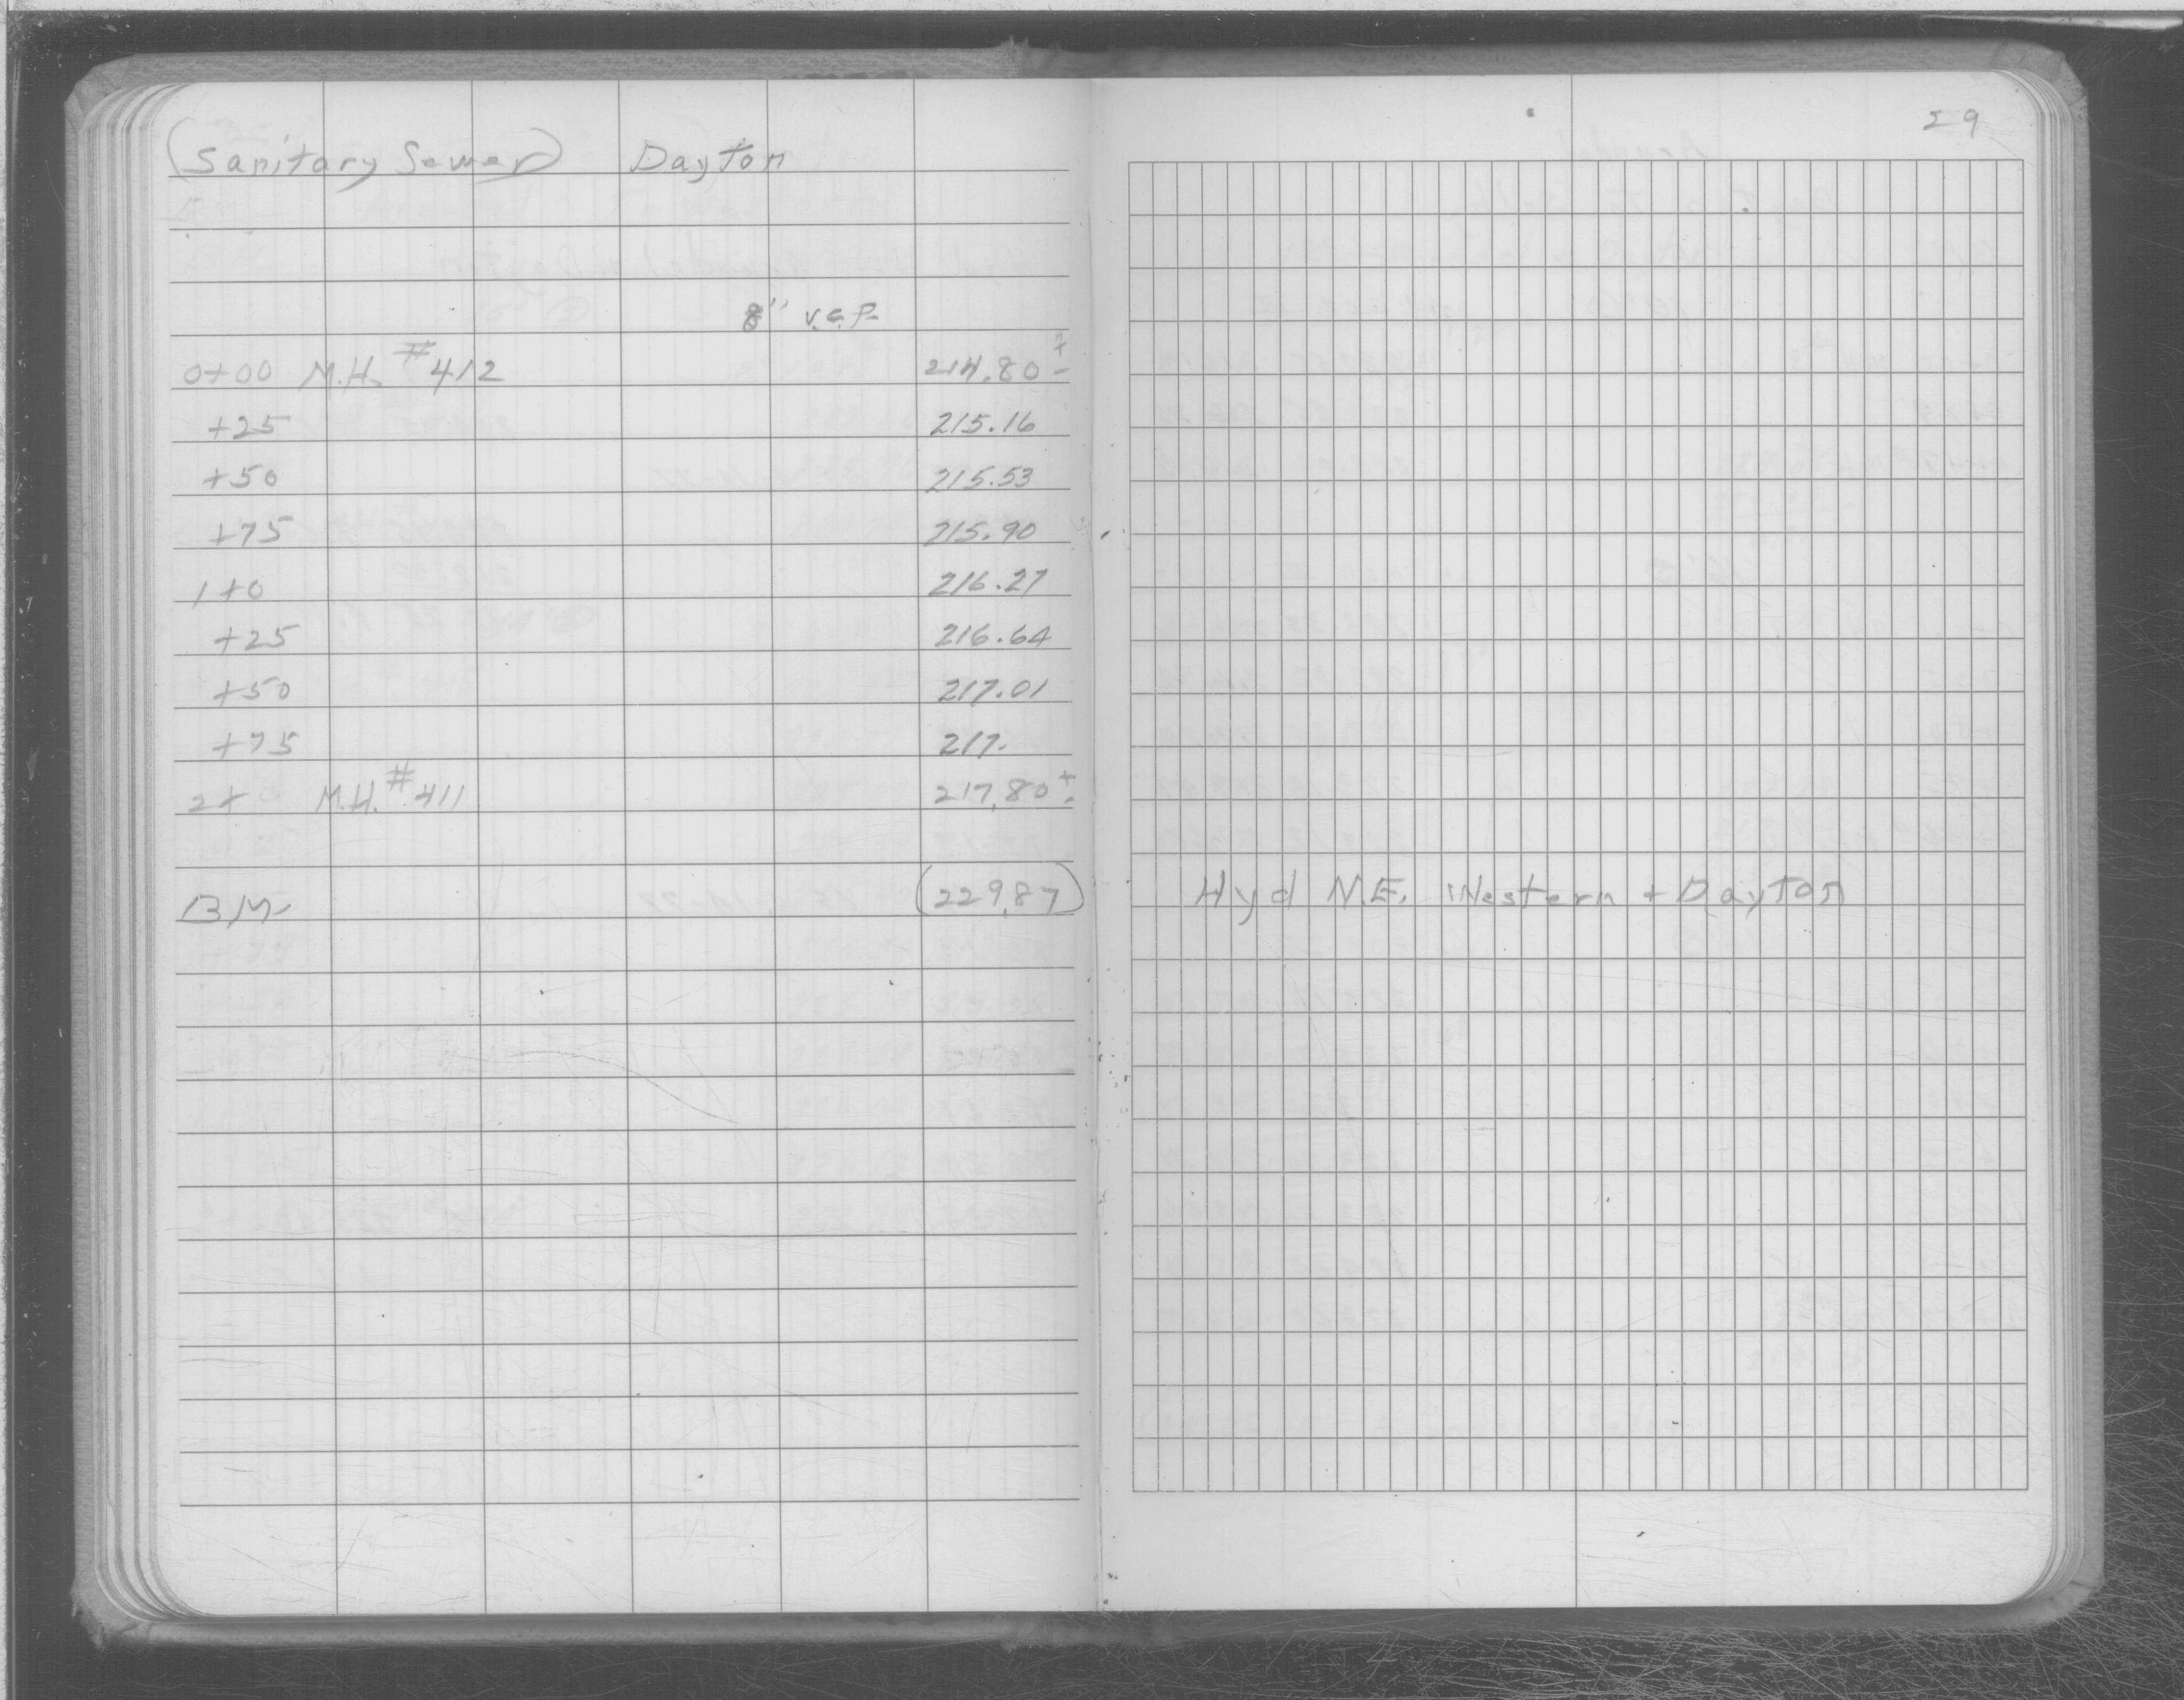 29
(Sanitary Sewer) Dayton
8" V.C.P.
0+00 M.H. #412 214.80±
+25 215.16
+50 215.53
+75 215.90
1+0 216.27
+25 216.64
+50 217.01
+75 217.
2+ M.H. #411 217.80±
B.M. (229.87) Hyd N.E. Western + Dayton